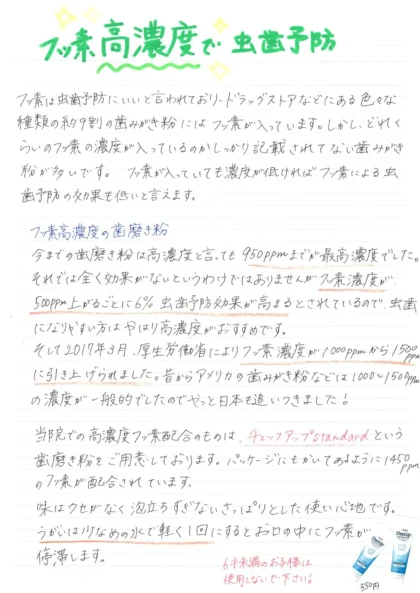 フッ素高濃度で虫歯予防
フッ素は虫歯予防にいいと言われており、ドラッグストアなどにある色々な
種類の約9割の歯みがき粉にはフッ素が入っています。しかし、どれく
らいのフッ素の濃度が入っているのかしっかり記載されてない歯みがき
粉が多いです。フッ素が入っていても濃度が低ければフッ素による虫
歯予防の効果も低いと言えます。
フッ素高濃度の歯磨き粉
今までの歯磨き粉は高濃度と言っても950ppmまでが最高濃度でした。
それでは全く効果がないというわけではありませんがフッ素濃度が
500ppm上がるごとに6%虫歯予防効果が高まるとされているので、虫歯
になりやすい方はやはり高濃度がおすすめです。
そして2017年3月、厚生労働省によりフッ素濃度が1000ppmから1500ppm
に引き上げられました。昔からアメリカの歯みがき粉などは1000~1500ppm
の濃度が一般的でしたのでやっと日本も追いつきました!
当院での高濃度フッ素配合のものは、チェックアップstandardという
歯磨き粉をご用意しております。パッケージにもかいてあるように1450ppm
のフッ素が配合されています。
味はクセがなく泡立ちすぎないさっぱりとした使い心地です。
うがいは少なめの水で軽く1回にするとお口の中にフッ素が
停滞します。
6才未満のお子様は
使用しないで下さい!
550円